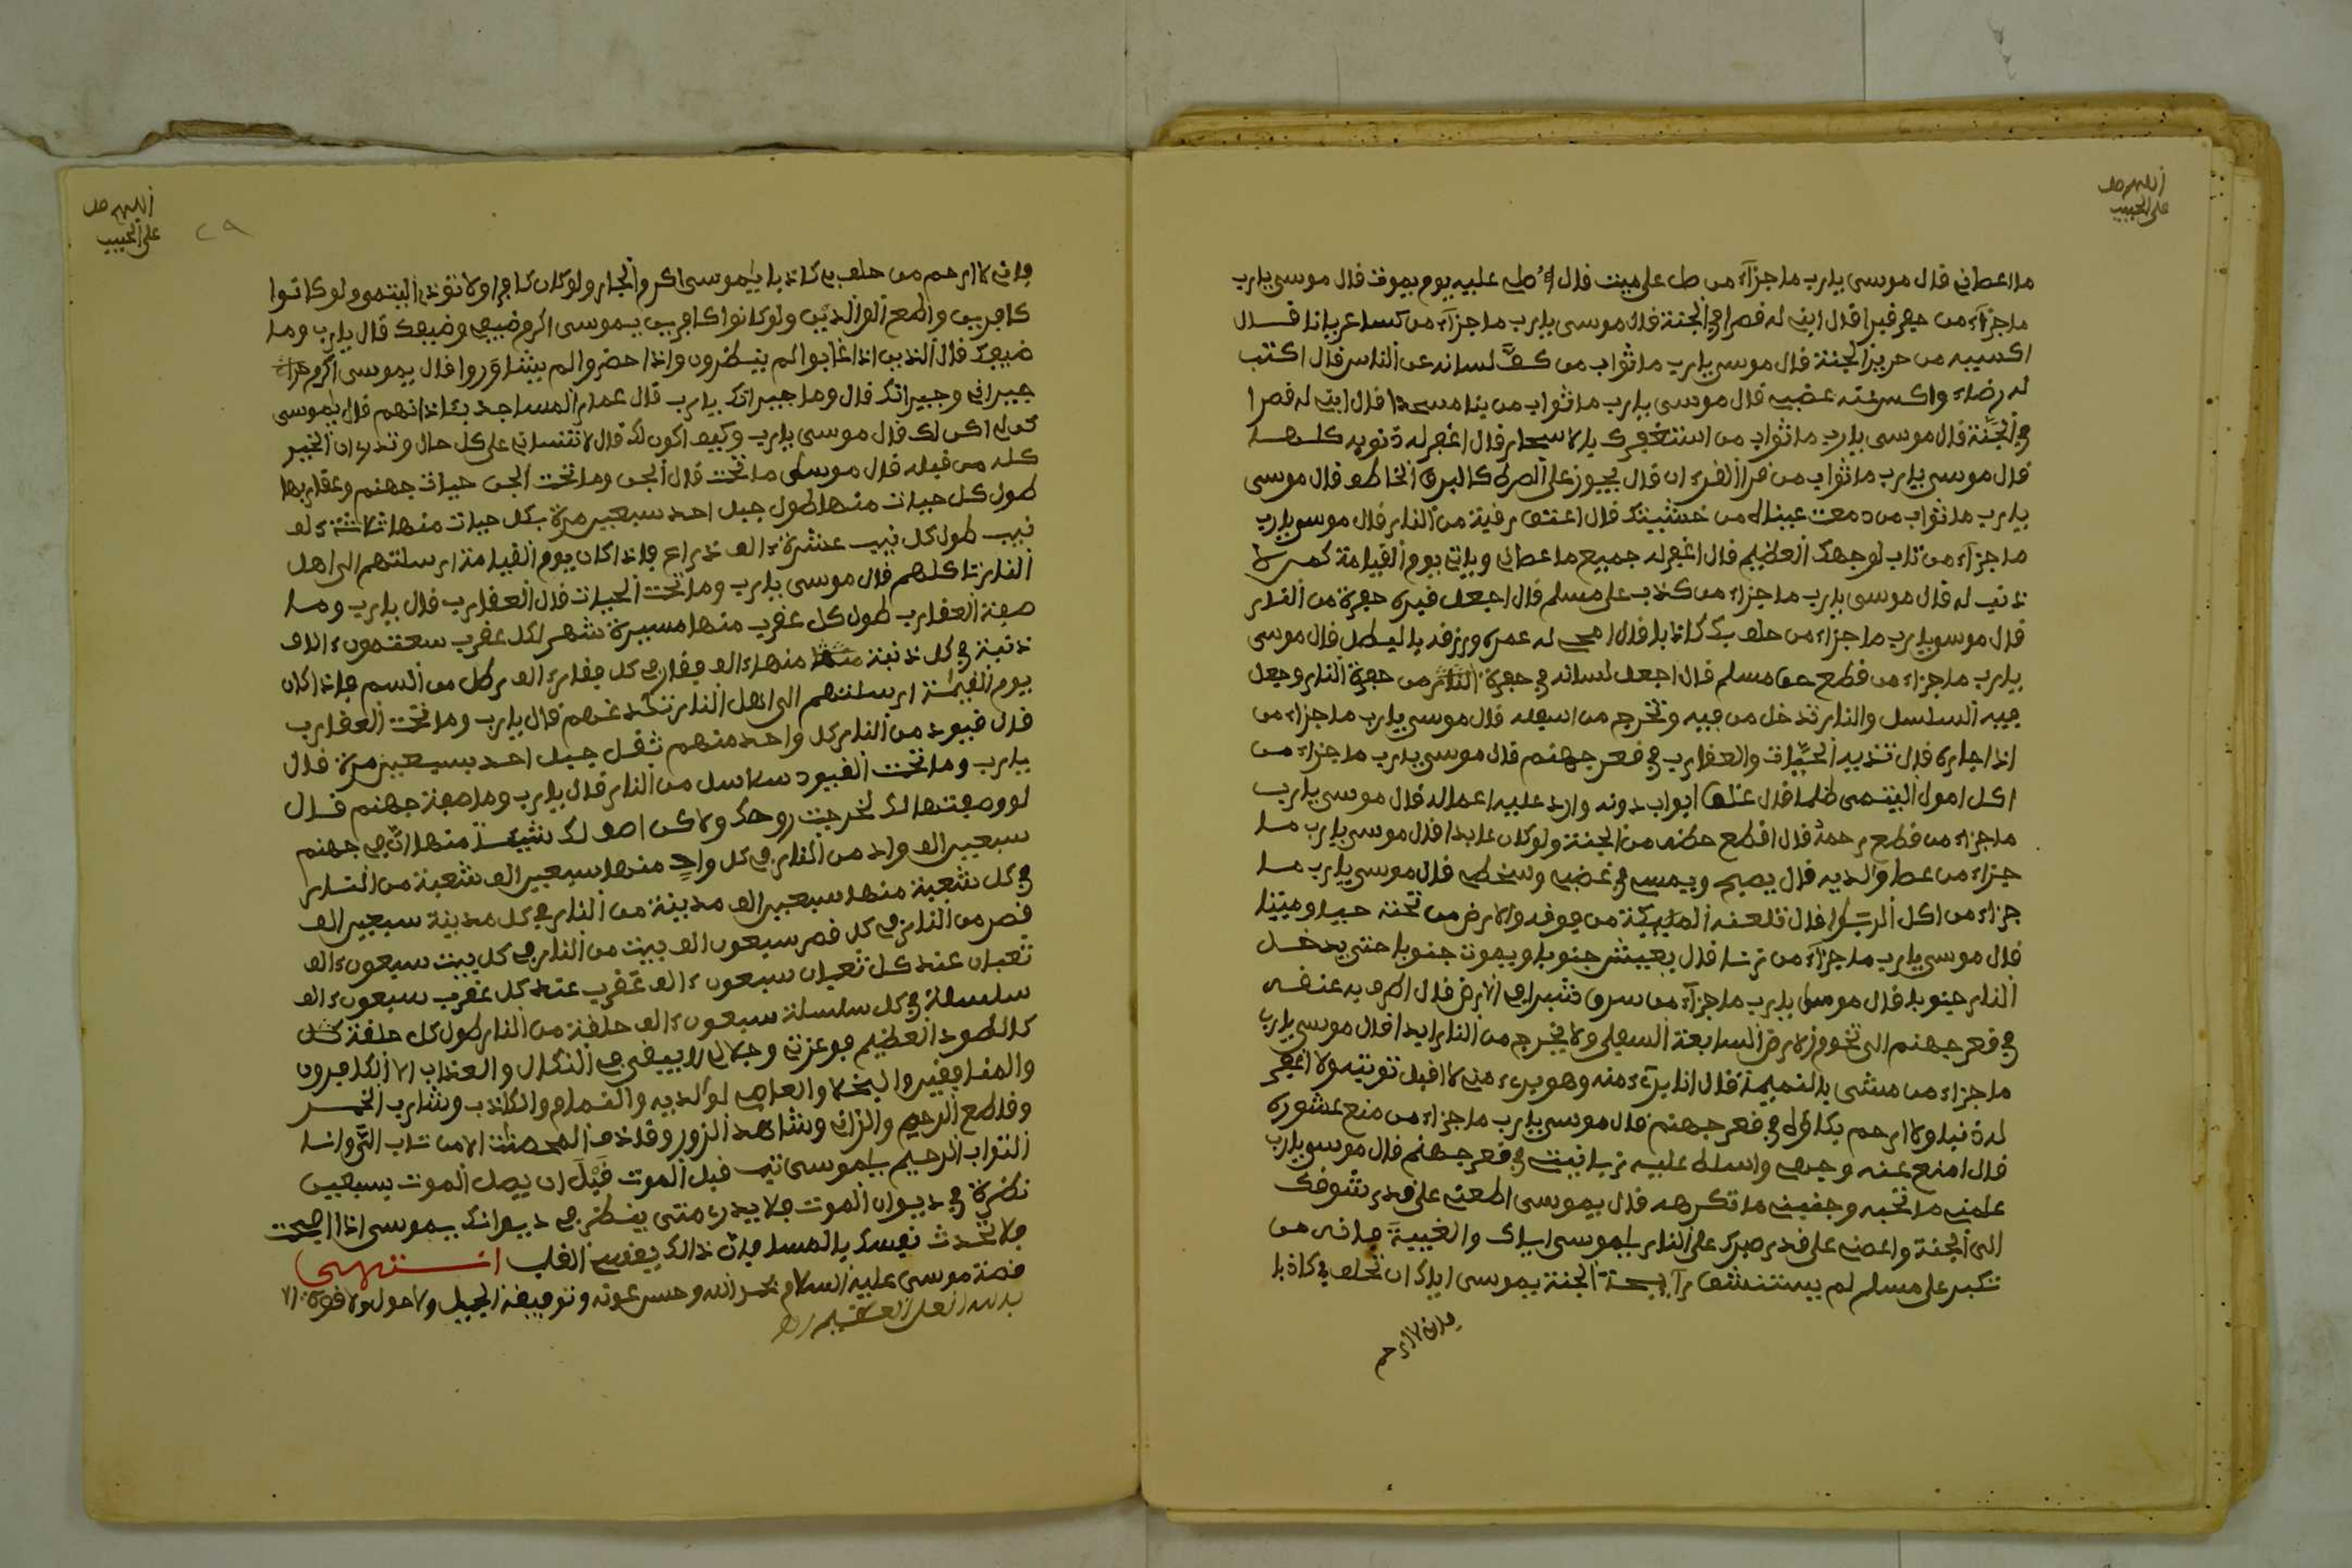 اللهم صل
على الحبيب
ما اعطاني قال موسى يارب ما جزآء من صل على ميت قال اُصلي عليه يوم يموت قال موسى يارب
ما جزآء من حفر قبرا قال ابني له قصرا في الجنة قال موسى يارب ما جزآء من كسا عريانا قال
اكسيبه من حرير الجنة قال موسى يارب ما ثواب من كفَّ لسانه عن الناس قال اكتب
له رضاء واكسيته غضبي قال موسى يارب ما ثواب من بنا مسجدا قال ابني له قصرا
في الجنَّة قال موسى يارب ما ثواب من استغفرك بالاسحار قال اغفر له ذنوبه كلها
قال موسى يارب ما ثواب من قرا القرءان قال يجوز على الصرط كالبرق الخاطف قال موسى
يارب ما ثواب من دمعت عيناه من خشيتك قال اعتق رقبته من النار قال موسى يارب
ما جزآء من تاب لوجهك العظيم قال اغفر له جميع ما عصاني وياتي يوم القيامة كمن لا
ذنب له قال موسى يارب ما جزاء من كذب على مسلم قال اجعل قبره حفرة من النار
قال موسى يارب ما جزاء من حلف بك كاذبا قال امحي له عمره ورزقه بالبطل قال موسى
يارب ما جزاء من قطع حق مسلم قال اجعل لسانه في حفرة من حفرة النار وجعل
فيه السلسل والنار تدخل من فيه وتخرج من اسفله قال موسى يارب ما جزاء من
اذا جاره قال تذيه الحيَّات والعقارب في قعر جهنم قال موسى يارب ما جزاء من
اكل امول اليتمى ظلما قال غلق ابواب دونه وارد عليه اعماله قال موسى يارب
ما جزاء من قطع رحمه قال اقطع حظه من الجنة ولو كان عابدا قال موسى يارب ما
جزاء من عصا والديه قال يصبح ويمسي في غضبي وسخطي قال موسى يارب ما
جزاء من اكل الربوا قال تلعنه المليكة من فوقه والارض من تحته حيا وميتا
قال موسى يارب ما جزآء من زنا قال يعيش جنوبا ويموت جنوبا حتى يدخل
النار جنوبا قال موسى يارب ما جزآء من سرق شبرا في الارض قال اطوقه به عنقه
في قعر جهنم الى تخوم الارض السابعة السفلى ولا يخرج من النار ابدا قال موسى يارب
ما جزاء من مشى بالنميمة قال انا برئ منه وهو برئ مني لا اقبل توبته ولا اغفر
له ذنبا ولا ارحم بكاؤه في قعر جهنم قال موسى يارب ما جزاء من منع عشوره
قال امنع عنه وجهي واسلط عليه زبانيتي في قعر جهنم قال موسى يارب
علمني ما تحبه وجفيني ما تكرهه قال يموسى اطعني على قدر شوفك
الى الجنة واعصني على قدر صبرك على النار ياموسى اياك والغيبة فانه من
تكبر على مسلم لم يستنشق رآيحة الجنة يموسى اياك ان تحلف بي كاذبا
فاني لا ارحم
اللهم صل
على الحبيب
٢٩
فاني لا ارحم من حلف بي كاذبا ياموسى اكرم الجار ولو كان كافرا ولا توذي اليتمى ولو كانوا
كافرين واطع الوالدين ولو كانوا كافرين يموسى اكرم ضيفي وضيفك قال يارب وما
ضيفك قال الذين اذا غابوا لم ينظرون واذا حضروا لم يشاوروا قال يموسى اكرم
جيراني وجيرانك قال وما جيرانك يارب قال عمار المساجد بئاذانهم قال ياموسى
كن لي اكن لك قال موسى يارب وكيف اكون لك قال لا تنساني على كل حال وتدري ان الخير
كله من قبله قال موسى ما تحت قال الجن وما تحت الجن حيات جهنم وعقاربها
طول كل حيات منها طول جبل احد سبعين مرة بكل حيات منها ثلاثة ءالف
نيب طول كل نيب عشرة ءالف ذراع فاذا كان يوم القيامة ارسلتهم الى اهل
النار تاكلهم قال موسى يارب وما تحت الحيات قال العقارب قال يارب وما
صفة العقارب طول كل عقرب منها مسيرة شهر لكل عقرب ءالف
ذنبة في كل ذنبة منها ءالف فقار في كل فقار ءالف رطل من السم فاذا كان
يوم القيامة ارسلتهم الى اهل النار تلدغهم قال يارب وما تحت العقارب
قال قيود من النار كل واحد منهم ثقل جبل احد سبعين مرة قال
يارب وما تحت القيود سلاسل من النار قال يارب وما صفة جهنم قال
لو وصفتها لك لخرجت روحك ولاكن اصف لك شيئا منها ان في جهنم
سبعين الف واد من النار في كل واد منها سبعين الف شعبة من النار
في كل شعبة منها سبعين الف مدينة من النار في كل مدينة سبعين الف
قصر من النار في كل قصر سبعون الف بيت من النار في كل بيت سبعون ءالف
ثعبان عند كل ثعبان سبعون ءالف عقرب عند كل عقرب سبعون ءالف
سلسلة في كل سلسلة سبعون ءالف حلقة من النار طول كل حلقة
كالطود العظيم فوعزتي وجلالي لا يبيفى في النكال والعذاب الا الكافرون
والمنافقين والبخلا والعاصي لوالديه والنمام والكاذب وشارب الخمر
وقاطع الرحم والزاني وشاهد الزور وقاذف المحصنات الا من تاب التَّوانا
التواب الرحيم ياموسى تب قبل الموت قَبْلَ ان يصل الموت بسبعين
نظرة في ديوان الموت فلا يدري متى ينظر في ديوانك يموسى اذا اصبحت
فلا تحدث نفسك بالمسا فان ذالك يقسي القلب انتهى
قصة موسى عليه السلام بحمد الله وحسن عونه وتوفيقه الجميل ولا حول ولا قوة الا
بالله العلي العظيم